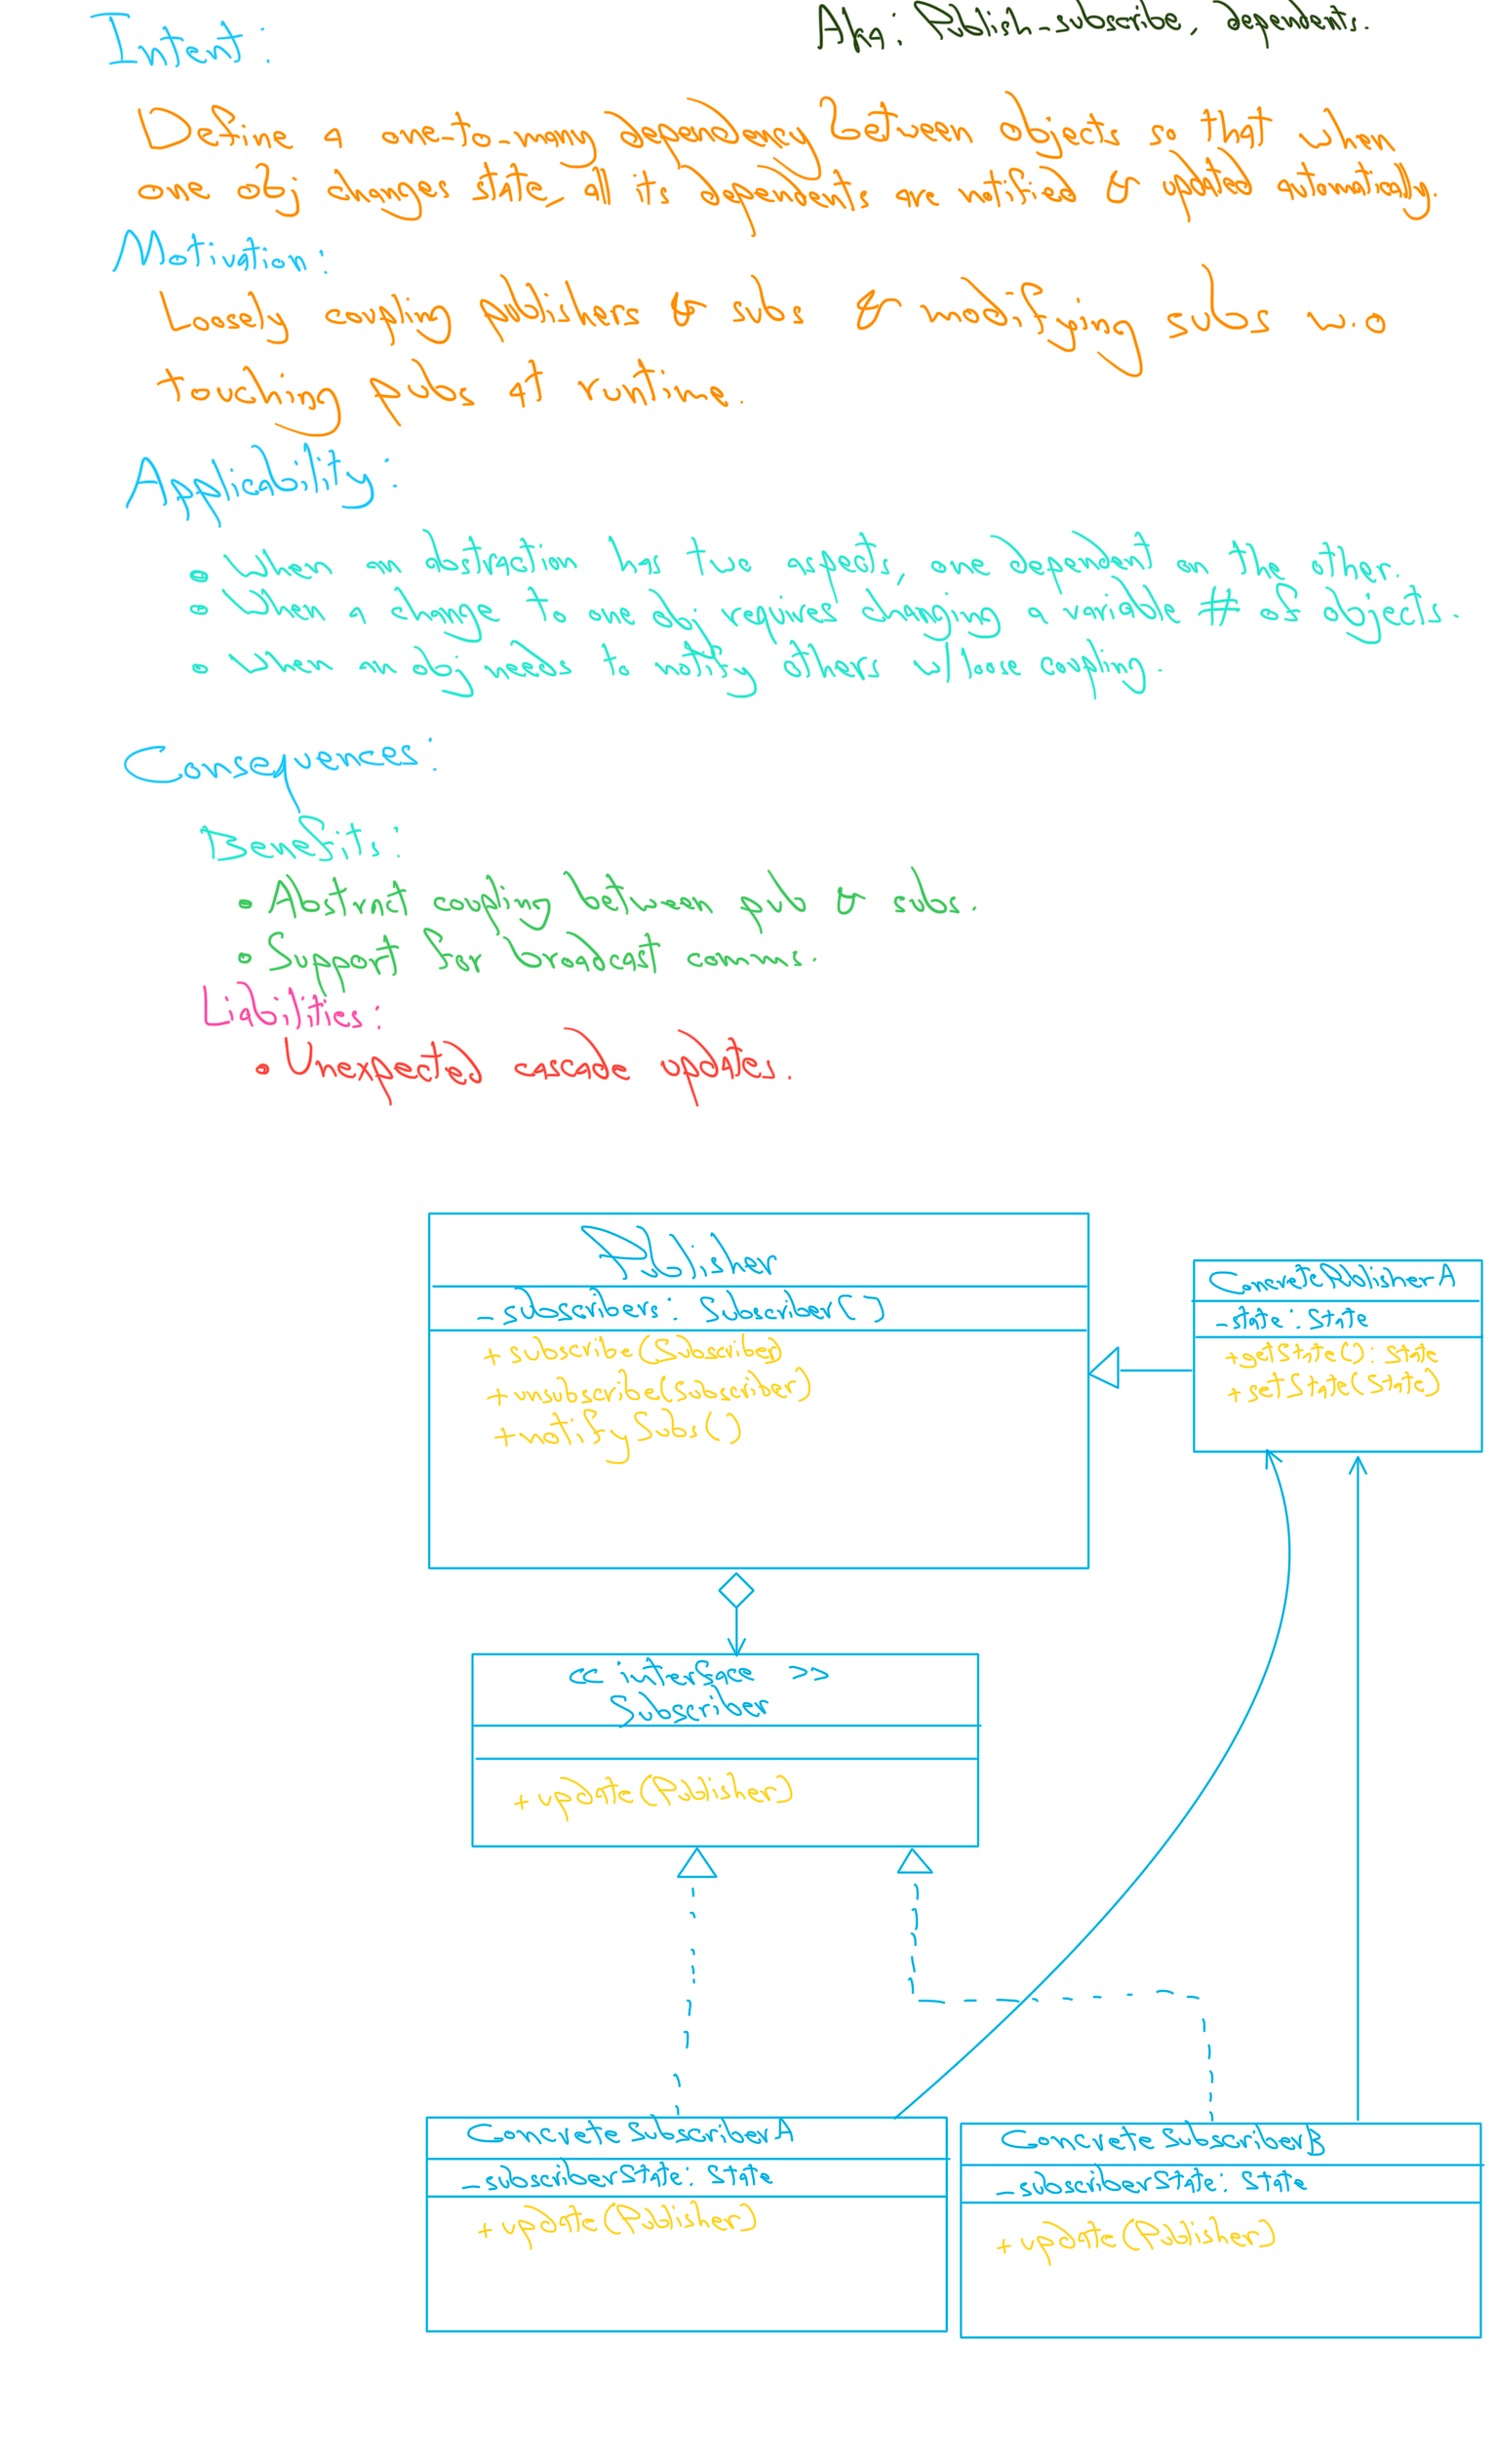 Intent:
AKA: Publish-subscribe, dependents.
Define a one-to-many dependency between objects so that when
one obj changes state, all its dependents are notified & updated automatically.
Motivation:
Loosely coupling publishers & subs & notifying subs w.o
tracking pubs at runtime.
Applicability:
• When an abstraction has two aspects, one dependent on the other.
• When a change to one obj requires changing a variable # of objects.
• When an obj needs to notify others w/ loose coupling.
Consequences:
Benefits:
• Abstract coupling between pub & subs.
• Support for broadcast comms.
Liabilities:
• Unexpected cascade updates.
Publisher
- subscribers: Subscriber[]
+ subscribe(Subscriber)
+ unsubscribe(Subscriber)
+ notifySubs()
ConcretePublisherA
- state: State
+ getState(): State
+ setState(State)
<< interface >>
Subscriber
+ update(Publisher)
ConcreteSubscriberA
- subscriberState: State
+ update(Publisher)
ConcreteSubscriberB
- subscriberState: State
+ update(Publisher)